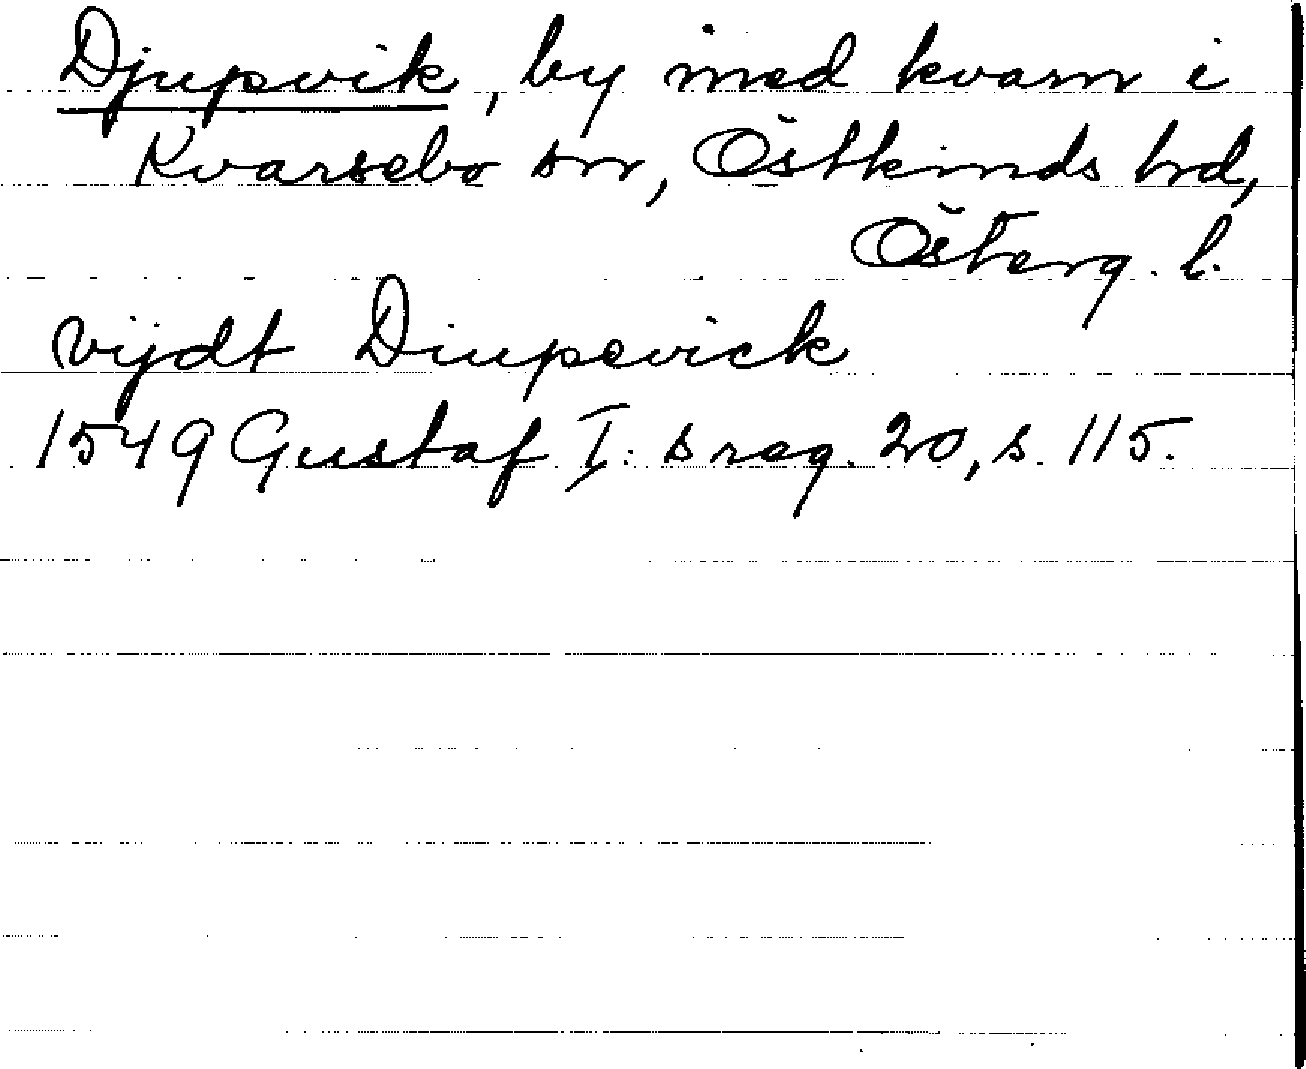 Djupsvik, by med kvarn i
Kvarsebo sn, Östkinds hrd,
Österg. l.
vijdt Diupsvick
1549 Gustaf I: s reg. 20, s. 115.